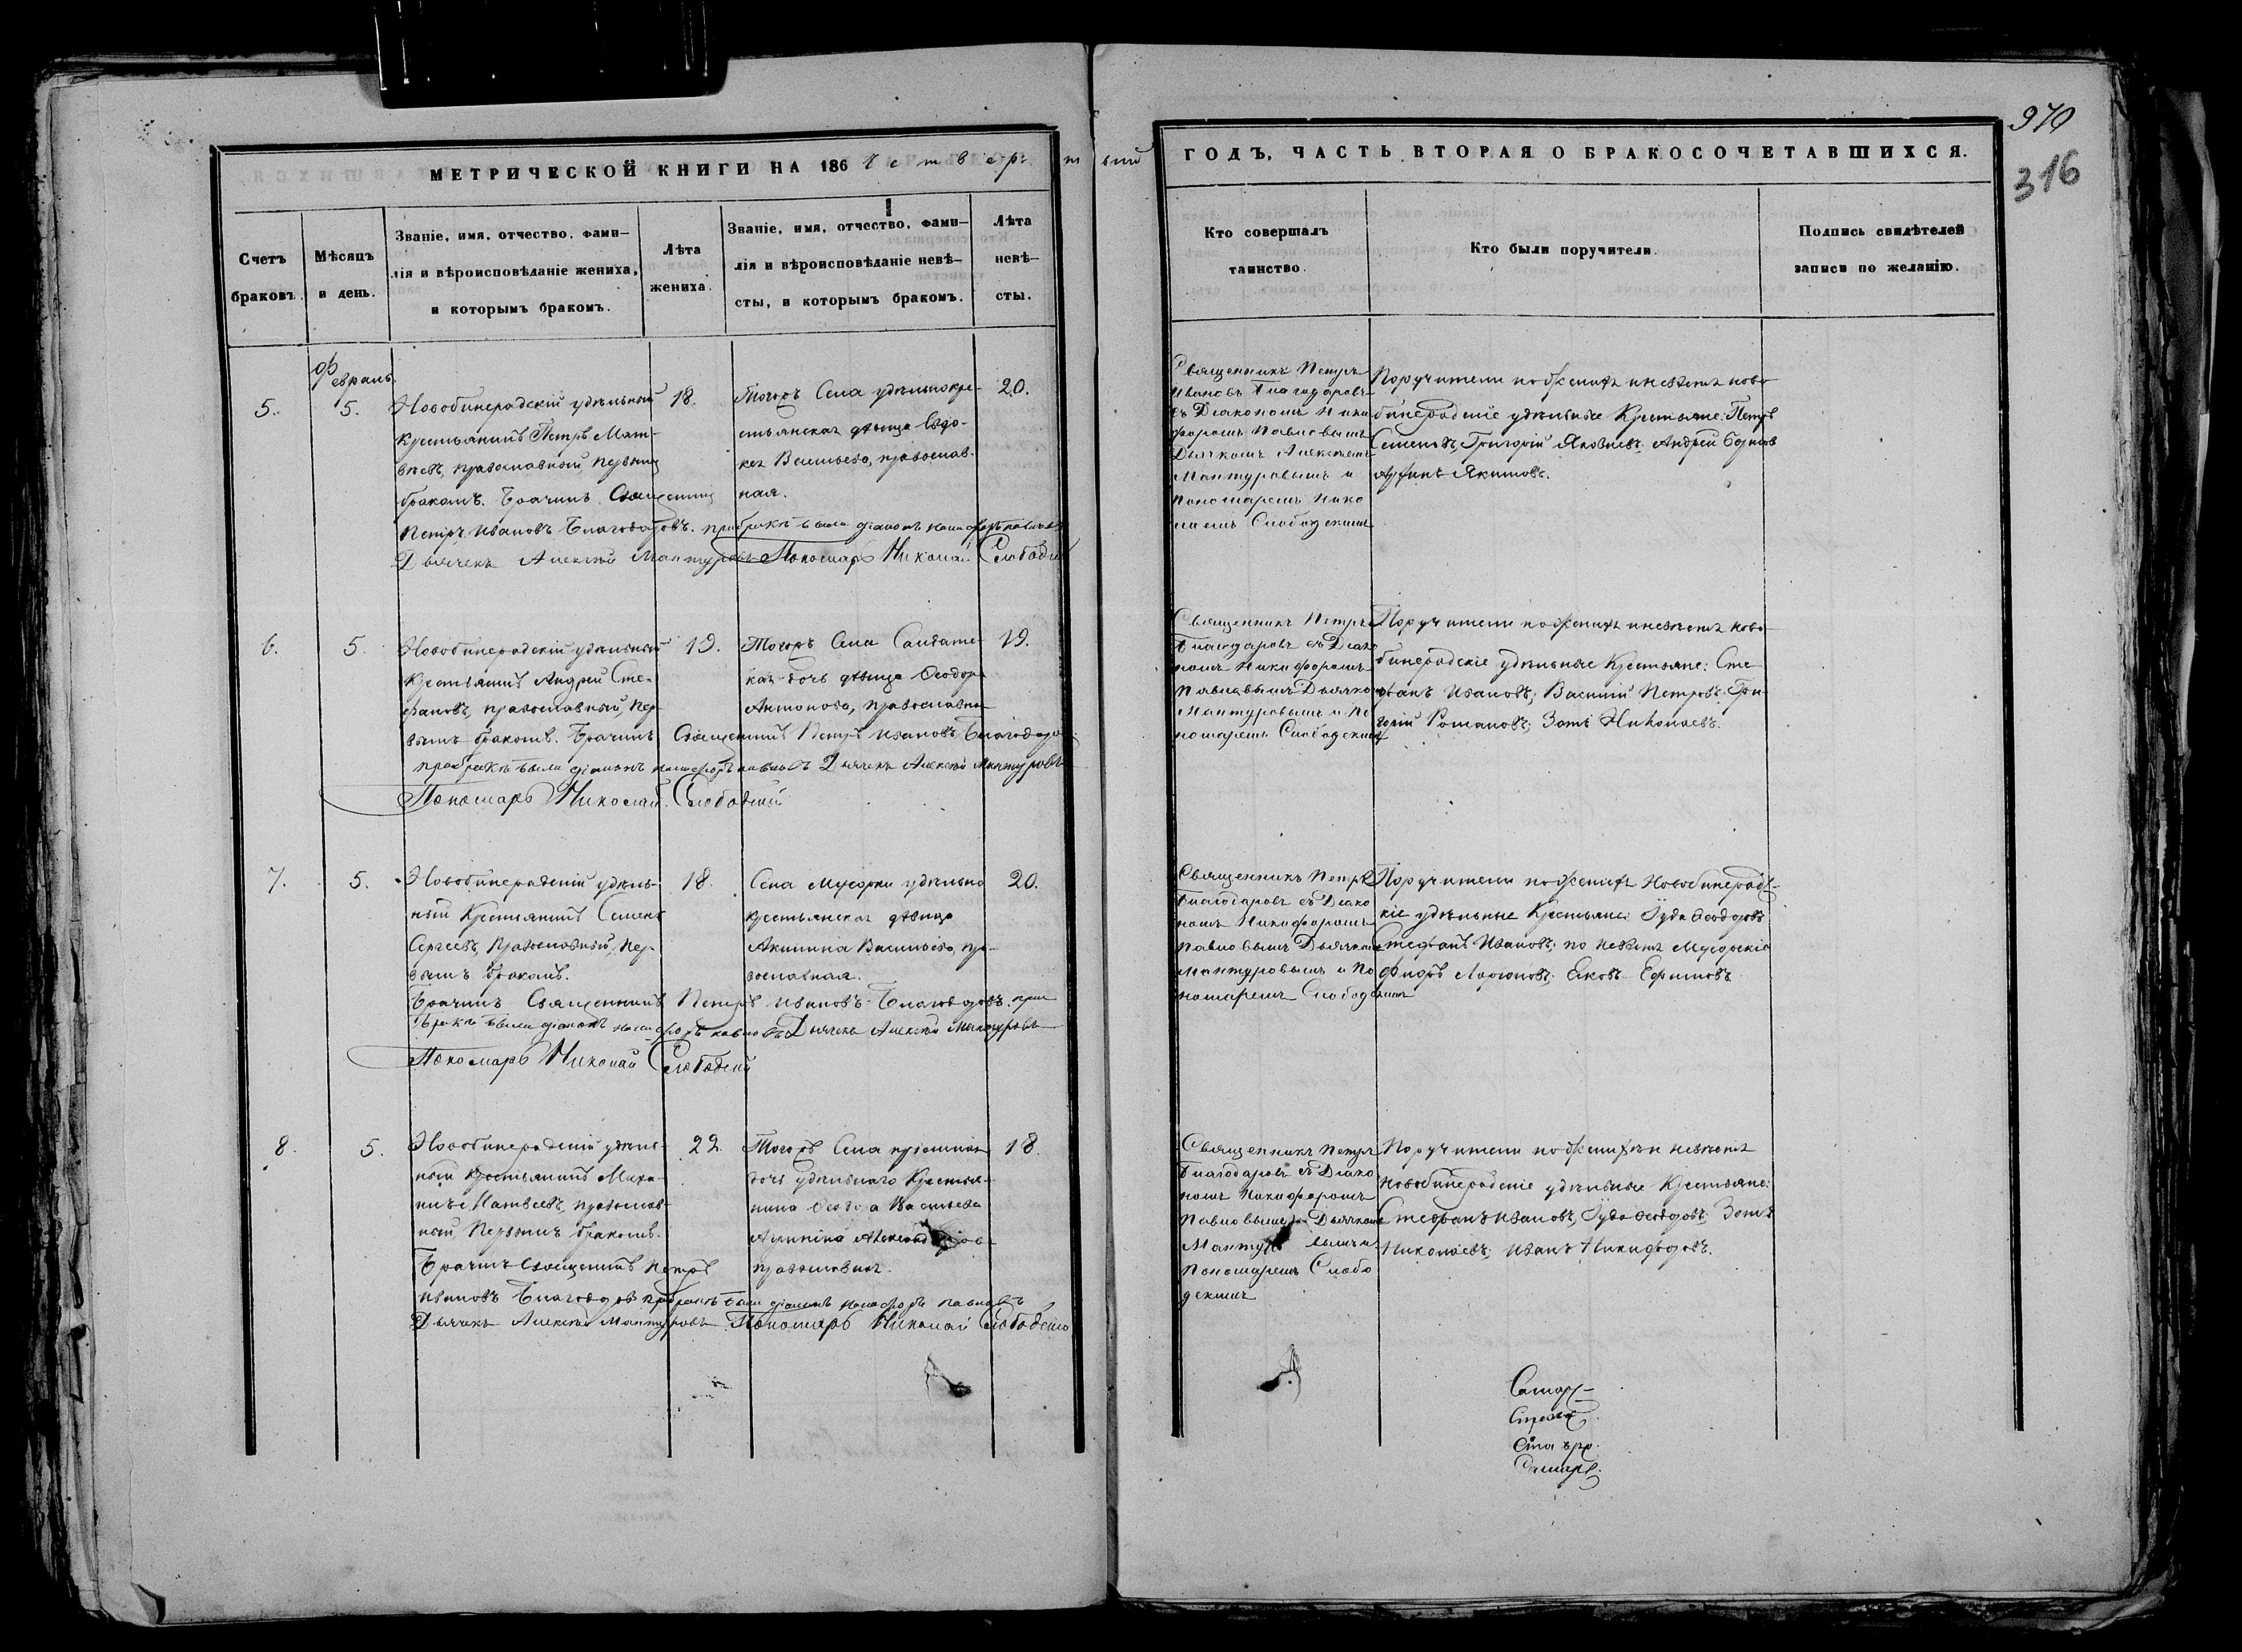 970
316
МЕТРИЧЕСКОЙ КНИГИ НА 186 четвер
тый ГОДЪ, ЧАСТЬ ВТОРАЯ О БРАКОСОЧЕТАВШИХСЯ.
Счетъ
браковъ.
Мѣсяцъ
и день.
Званіе, имя, отчество, фами-
лія и вѣроисповѣданіе жениха,
и которымъ бракомъ.
Лѣта
жениха.
Званіе, имя, отчество, фами-
лія и вѣроисповѣданіе невѣ-
сты, и которымъ бракомъ.
Лѣта
невѣ-
сты.
Кто совершалъ
таинство.
Кто были поручители.
Подпись свидѣтелей
записи по желанію.
Февраль
5.
5.
Новобинарадскій удѣльный
крестьянинъ Петръ Мат-
вѣевъ, православный, первымъ
бракомъ. Брачилъ Священникъ
Петръ Ивановъ Благодаровъ. при бракѣ были діаконъ Никифоръ Павловъ
Дьячекъ Алексѣй Мантуровъ Пономарь Николай Слободскій
18.
Тогожъ Села удѣльнокре-
стьянская дѣвица Евдо-
кея Васильева, православ-
ная.
20.
Священникъ Петръ
Ивановъ Благодаровъ
съ Діакономъ Ники
форомъ Павловымъ
Дьячкомъ Алексѣемъ
Мантуровымъ и
Пономаремъ Нико
лаемъ Слободскимъ
Поручители по женихѣ и невѣстѣ ново
бинарадскіе удѣльные Крестьяне: Петръ
Семеновъ, Григорій Яковлевъ, Андрей
Якимовъ.
6.
5.
Новобинарадскій удѣльный
крестьянинъ Андрей Сте-
фановъ, православный, пер-
вымъ бракомъ. Брачилъ Священникъ Петръ Ивановъ Благодаровъ
при бракѣ были діаконъ Никифоръ Павловъ Дьячекъ Алексѣй Мантуровъ
Пономарь Николай Слободскій
19.
Тогожъ Села Солдатс-
кая дочь дѣвица Ѳеодора
Антонова, православная
19.
Священникъ Петръ
Благодаровъ съ Діако
номъ Никифоромъ
Павловымъ Дьячкомъ
Мантуровымъ и По
номаремъ Слободскимъ
Поручители по женихѣ и невѣстѣ ново
бинарадскіе удѣльные Крестьяне: Сте
фанъ Ивановъ, Василій Петровъ, Гри-
горій Романовъ, Зотъ Николаевъ.
7.
5.
Новобинарадскій удѣль-
ный Крестьянинъ Семенъ
Сергеевъ, православный, пер-
вымъ бракомъ.
Брачилъ Священникъ Петръ Ивановъ Благодаровъ. при
бракѣ были діаконъ Никифоръ Павловъ Дьячекъ Алексѣй Мантуровъ
Пономарь Николай Слободскій
18.
Села Мусорки удѣльно
крестьянская дѣвица
Акилина Васильева, пра-
вославная.
20.
Священникъ Петръ
Благодаровъ съ Діако
номъ Никифоромъ
Павловымъ Дьячкомъ
Мантуровымъ и По
номаремъ Слободскимъ
Поручители по женихѣ Новобинарадс-
кіе удѣльные Крестьяне: Іуда Ѳеодоровъ
Стефанъ Ивановъ; по невѣстѣ Мусорскіе
Ефимовъ.
8.
5.
Новобинарадскій удѣль-
ный Крестьянинъ Миха-
илъ Матвеевъ, православ-
ный первымъ бракомъ.
Брачилъ Священникъ Петръ
Ивановъ Благодаровъ при бракѣ были діаконъ Никифоръ Павловъ
Дьячекъ Алексѣй Мантуровъ Пономарь Николай Слободскій
22.
Тогожъ Села
дочь удѣльнаго Крестья-
нина Ѳеодора Васильева
православная.
18.
Священникъ Петръ
Благодаровъ съ Діако
номъ Никифоромъ
Павловымъ Дьячкомъ
Мантуровымъ и
Пономаремъ Слобо
дскимъ
Поручители по женихѣ и невѣстѣ
новобинарадскіе удѣльные Крестьяне:
Стефанъ Ивановъ, Іуда Ѳеодоровъ, Зотъ
Николаевъ, Иванъ Никифоровъ.